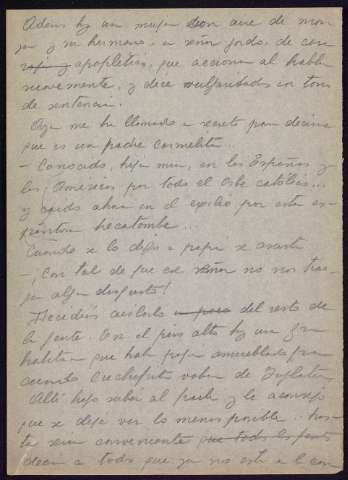 Además hay una mujer con aire de mon
ja y su hermano, un señor gordo, de cara
roja y apoplético, que acciona al hablar
nuevamente, y dice vulgaridades en tono
de sentencia.
Oya me ha llamado en secreto para decirme
que es un padre carmelita...
- Conocido, hija mía, en las Españas y
las Américas por todo el Orbe católico...
y caído ahora en el exilio por esta es
pantosa hecatombe...
Cuando se lo digo a papá se asusta
- ¡Con tal de que ese señor no nos trai
ga algún disgusto!
Decidís aislarlo un poco del resto de
la gente. En el piso alto hay una gran
habitación que había papá amueblado para
cuando volvían de Inglaterra
Allí hago subir al padre y le aconsejo
que se deje ver lo menos posible... has
ta sería conveniente que todos los
decir a todos que ya no está en la casa